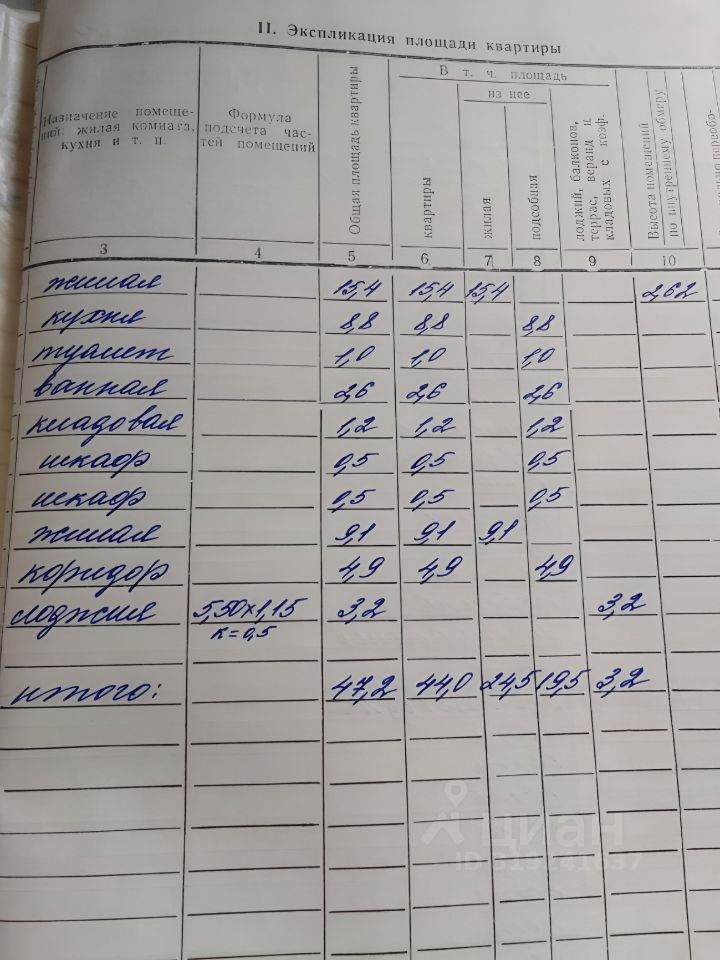 II. Экспликация площади квартиры
Назначение помеще-
ний: жилая комната,
кухня и т. п.
Формула
подсчета час-
тей помещений
Общая площадь квартиры
В т. ч. площадь
квартиры
из нее
жилая
подсобная
лоджий, балконов,
террас, веранд и
кладовых с коэф.
Высота помещений
по внутреннему обмеру
3 4 5 6 7 8 9 10
жилая 15,4 15,4 15,4 2,62
кухня 8,8 8,8 8,8
туалет 1,0 1,0 1,0
ванная 2,6 2,6 2,6
кладовая 1,2 1,2 1,2
шкаф 0,5 0,5 0,5
шкаф 0,5 0,5 0,5
жилая 9,1 9,1 9,1
коридор 4,9 4,9 4,9
лоджия 5,50х1,15 3,2 3,2
к=0,5
итого: 47,2 44,0 24,5 19,5 3,2
Циан